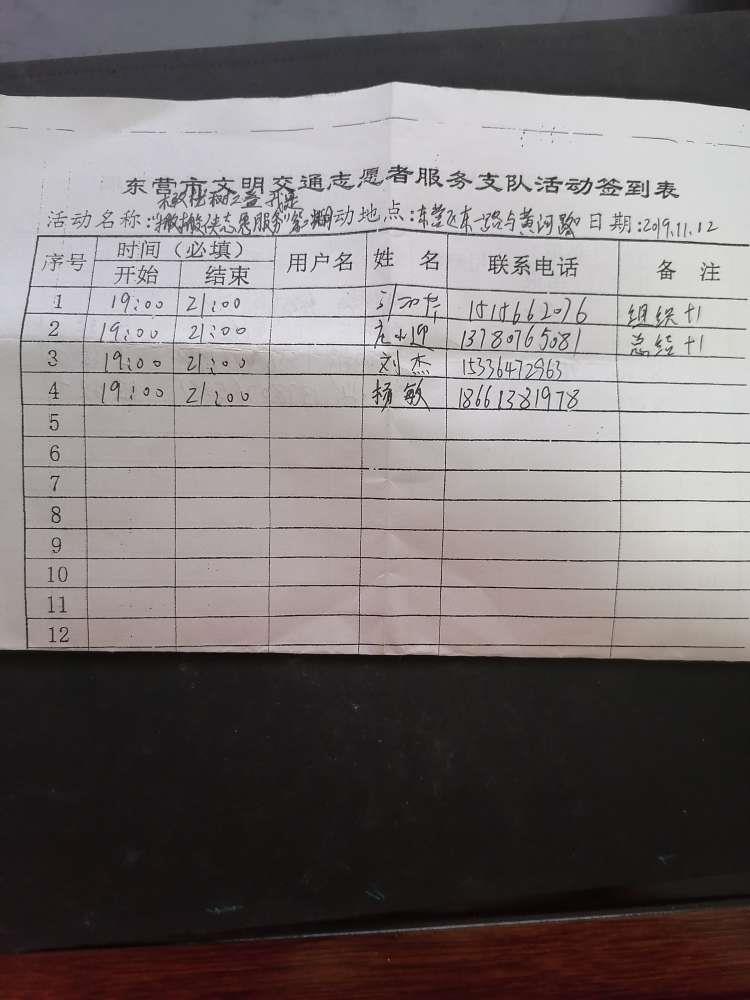 东营市文明交通志愿者服务支队活动签到表
我是
活动名称: 侠志愿服务 动地点:东营区东一路与黄河路 日期:2019.11.12
序号 时间(必填) 用户名 姓名 联系电话 备注
开始 结束
1 19:00 21:00 组织+1
2 19:00 21:00 13780765081 总结+1
3 19:00 21:00 刘杰 15336472963
4 19:00 21:00 杨敏 18661381978
5
6
7
8
9
10
11
12